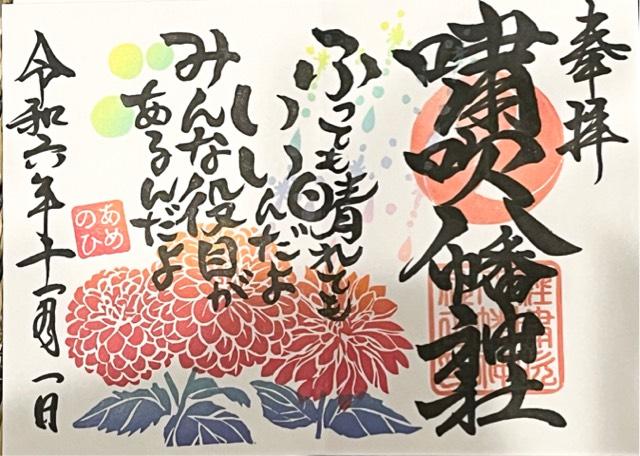 奉拝
嘯吹八幡神社
ふっても晴れても
いい日
いいんだよ
みんな役目が
あるんだよ
あめ
のひ
令和六年十一月一日